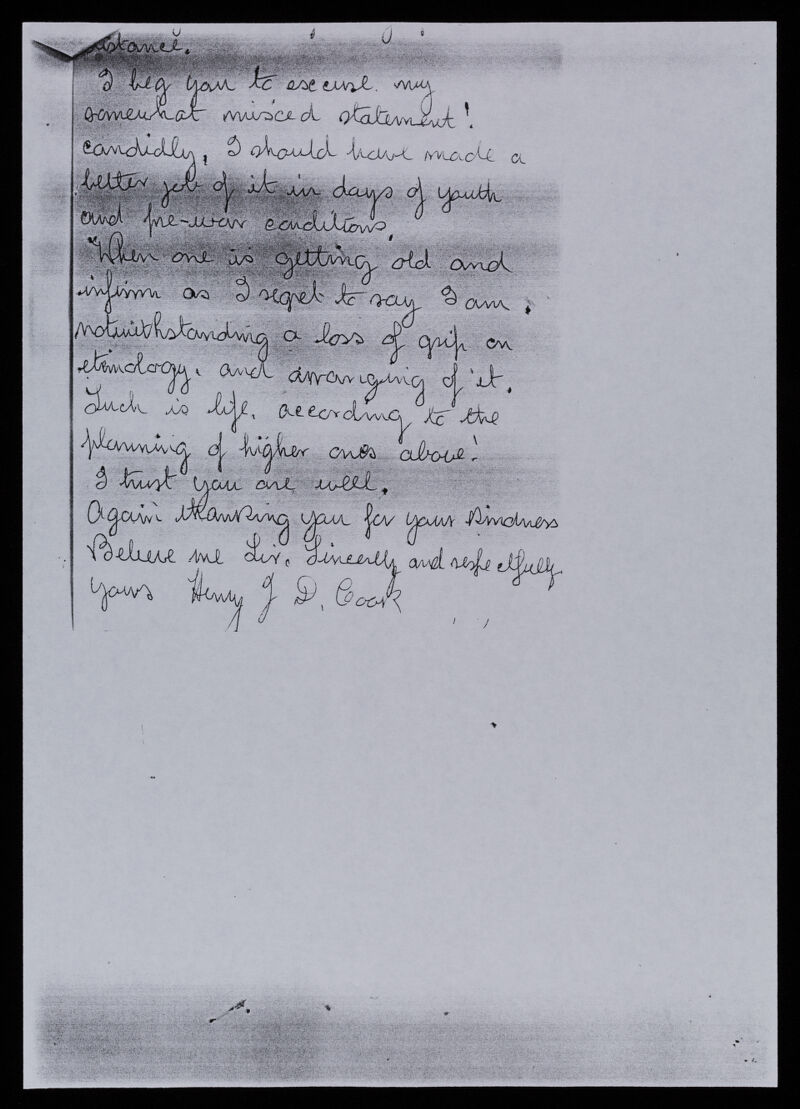 istance.
I beg you to excuse my
somewhat mixed statement!
candidly, I should have made a
better job of it in days of youth
and pre-war conditions.
When one is getting old and
infirm as I regret to say I am,
notwithstanding a loss of grip on
etimology. and arranging of it.
Such is life, according to the
planning of higher ones above!
I trust you are well.
Again thanking you for your kindness
Believe me Sir. Sincerely and respectfully
yours Henry J D. Cook